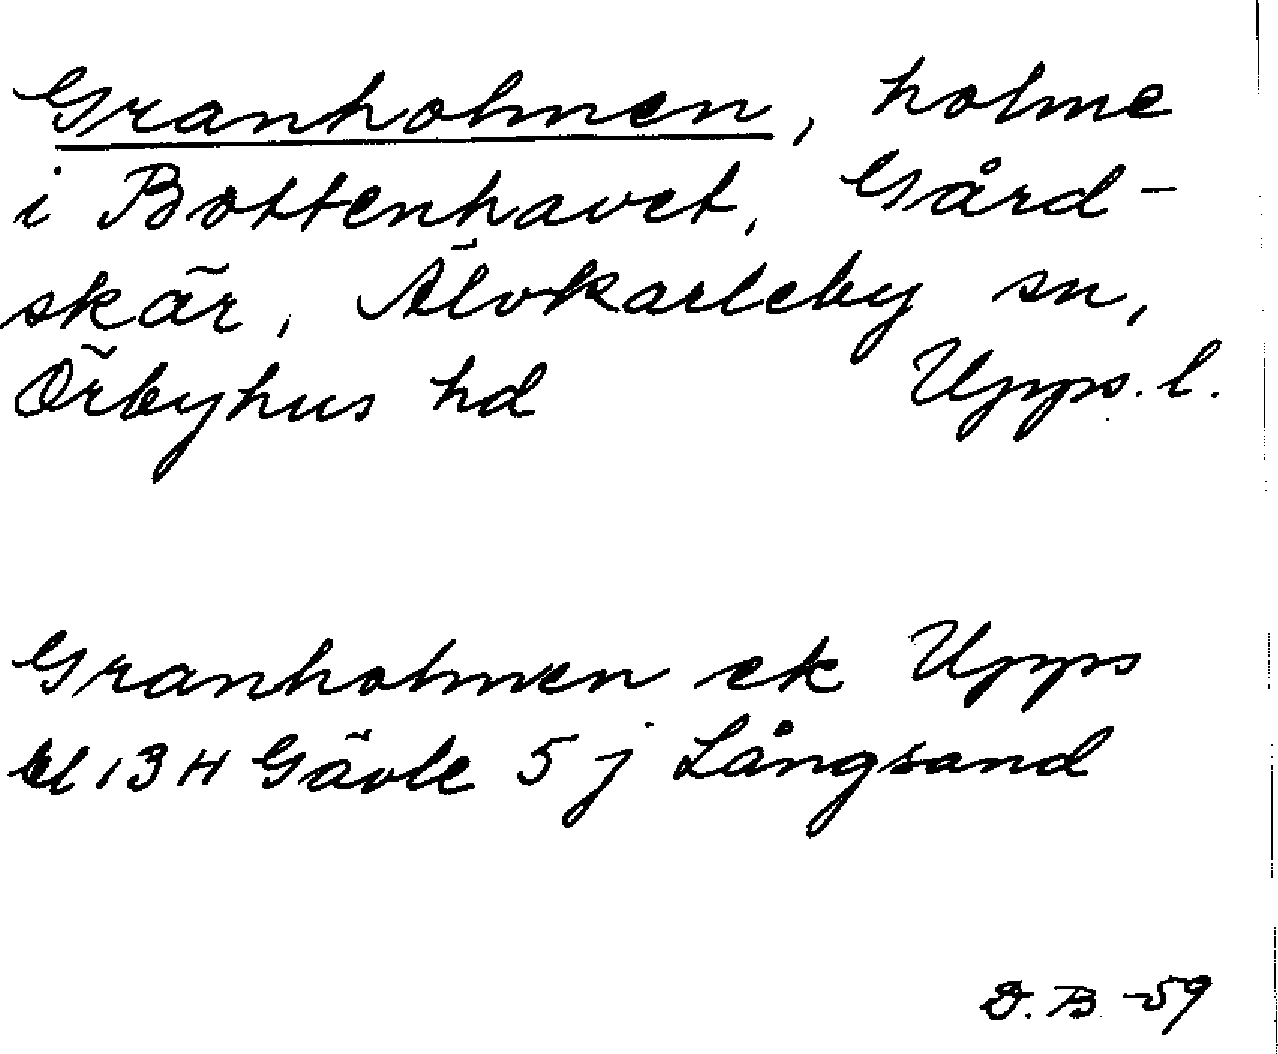 Granholmen, holme
i Bottenhavet, Gård-
skär, Älvkarleby sn,
Örbyhus hd Upps. l.
Granholmen ek Upps
bl 13 H Gävle 5 j Långsand
D. B. -59